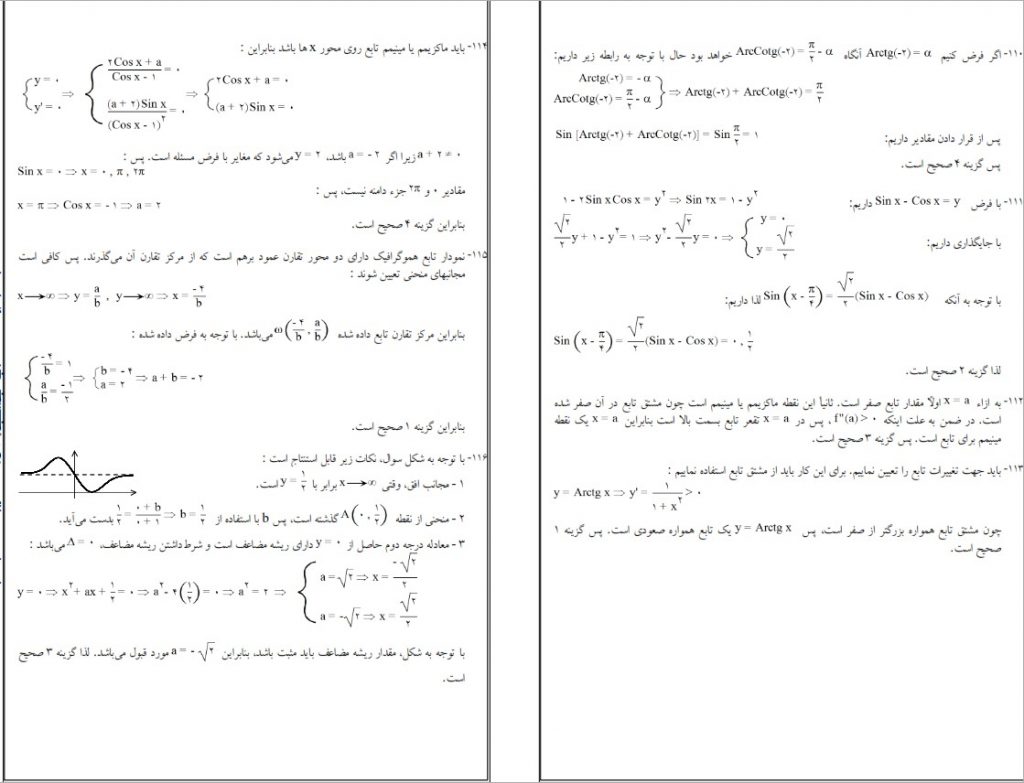 ۱۱۰- اگر فرض کنیم Arctg(-۲) = α آنگاه ArcCotg(-۲) = π/۲ - α خواهد بود حال با توجه به رابطه زیر داریم:
Arctg(-۲) = - α
ArcCotg(-۲) = π/۲ - α } ⇒ Arctg(-۲) + ArcCotg(-۲) = π/۲
پس از قرار دادن مقادیر داریم: Sin [Arctg(-۲) + ArcCotg(-۲)] = Sin π/۲ = ۱
پس گزینه ۴ صحیح است.
۱۱۱- با فرض Sin x - Cos x = y داریم: ۱ - ۲ Sin x Cos x = y^۲ ⇒ Sin ۲x = ۱ - y^۲
با جایگذاری داریم: √۲/۲ y + ۱ - y^۲ = ۱ ⇒ y^۲ - √۲/۲ y = ۰ ⇒ { y = ۰
y = √۲/۲
با توجه به آنکه Sin (x - π/۴) = √۲/۲ (Sin x - Cos x) لذا داریم:
Sin (x - π/۴) = √۲/۲ (Sin x - Cos x) = ۰ , ۱/۲
لذا گزینه ۲ صحیح است.
۱۱۲- به ازاء x = a اولاً مقدار تابع صفر است. ثانیاً این نقطه ماکزیمم یا مینیمم است چون مشتق تابع در آن صفر شده
است. در ضمن به علت اینکه f"(a) > ۰ ، پس در x = a تقعر تابع بسمت بالا است بنابراین x = a یک نقطه
مینیمم برای تابع است. پس گزینه ۳ صحیح است.
۱۱۳- باید جهت تغییرات تابع را تعیین نماییم. برای این کار باید از مشتق تابع استفاده نماییم :
y = Arctg x ⇒ y' = ۱/(۱ + x^۲) > ۰
چون مشتق تابع همواره بزرگتر از صفر است، پس y = Arctg x یک تابع همواره صعودی است. پس گزینه ۱
صحیح است.
۱۱۴- باید ماکزیمم یا مینیمم تابع روی محور x ها باشد بنابراین :
{ y = ۰ ⇒ { (۲Cos x + a)/(Cos x - ۱) = ۰ ⇒ { ۲Cos x + a = ۰
y' = ۰ (a + ۲)Sin x/(Cos x - ۱)^۲ = ۰ (a + ۲)Sin x = ۰
a + ۲ ≠ ۰ زیرا اگر a = - ۲ باشد، y = ۲ می‌شود که مغایر با فرض مسئله است. پس :
Sin x = ۰ ⇒ x = ۰ , π , ۲π
مقادیر ۰ و ۲π جزء دامنه نیست، پس :
x = π ⇒ Cos x = - ۱ ⇒ a = ۲
بنابراین گزینه ۴ صحیح است.
۱۱۵- نمودار تابع هموگرافیک دارای دو محور تقارن عمود برهم است که از مرکز تقارن آن می‌گذرند. پس کافی است
مجانبهای منحنی تعیین شوند :
x → ∞ ⇒ y = a/b , y → ∞ ⇒ x = -۴/b
بنابراین مرکز تقارن تابع داده شده ω(-۴/b , a/b) می‌باشد. با توجه به فرض داده شده :
{ -۴/b = ۱ ⇒ { b = - ۴ ⇒ a + b = - ۲
a/b = -۱/۲ a = ۲
بنابراین گزینه ۱ صحیح است.
۱۱۶- با توجه به شکل سوال، نکات زیر قابل استنتاج است :
۱ - مجانب افق، وقتی x → ∞ برابر با y = ۱/۲ است.
۲ - منحنی از نقطه A(۰ , ۱/۲) گذشته است، پس b با استفاده از ۱/۲ = (۰ + b)/(۰ + ۱) ⇒ b = ۱/۲ بدست می‌آید.
۳ - معادله درجه دوم حاصل از y = ۰ دارای ریشه مضاعف است و شرط داشتن ریشه مضاعف، Δ = ۰ می‌باشد :
y = ۰ ⇒ x^۲ + ax + ۱/۲ = ۰ ⇒ a^۲ - ۴(۱/۲) = ۰ ⇒ a^۲ = ۲ ⇒ { a = √۲ ⇒ x = -√۲/۲
a = -√۲ ⇒ x = √۲/۲
با توجه به شکل، مقدار ریشه مضاعف باید مثبت باشد، بنابراین a = - √۲ مورد قبول می‌باشد. لذا گزینه ۳ صحیح
است.